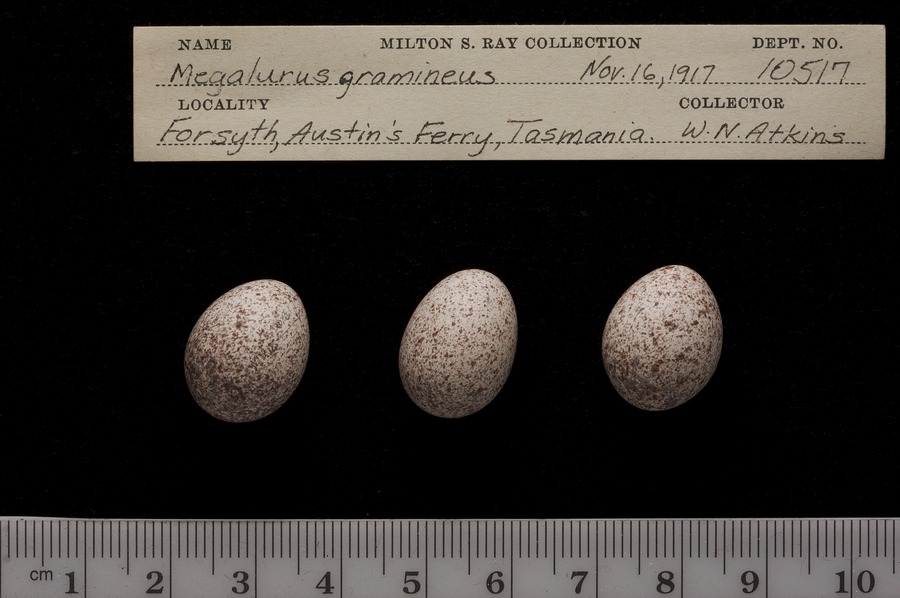 NAME MILTON S. RAY COLLECTION DEPT. NO.
Megalurus gramineus Nov. 16, 1917 10517
LOCALITY COLLECTOR
Forsyth, Austin's Ferry, Tasmania. W. N. Atkins
cm 1 2 3 4 5 6 7 8 9 10